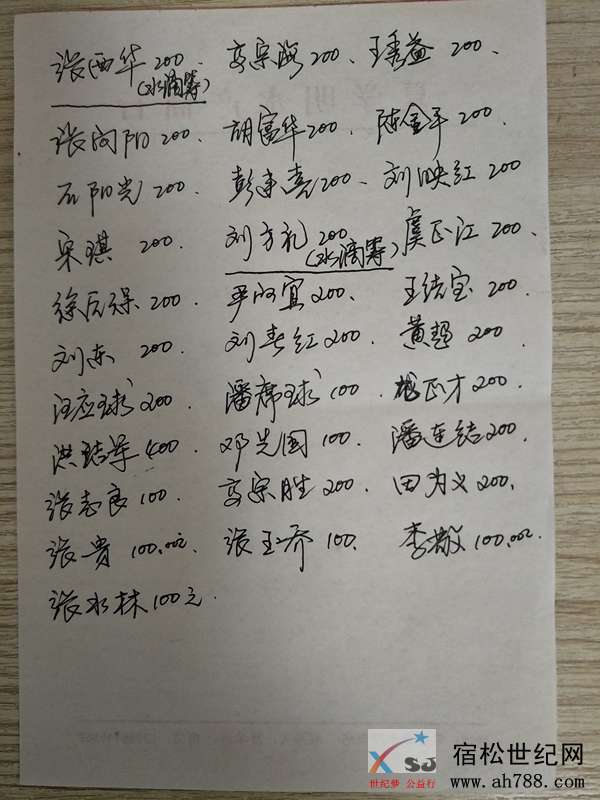 张西华 200. 李宗海 200、王秀益 200、
(水滴筹)
张向阳 200. 胡富华 200、陈金平 200
石阳光 200. 彭建亮 200、刘映红 200
宋琪 200. 刘方礼 200 虞正江 200.
(水滴筹)
徐 保 200. 尹 宜 200. 王结宝 200
刘东 200. 刘春红 200. 黄超 200
汪应球 200 潘席球 100 正才 200.
洪结军 400 邓兴国 100. 潘连结 200.
张志良 100. 李宗胜 200. 田为义 200.
张贵 100.00元. 张玉乔 100. 李敬 100.00元.
张水林 100元.
SJ
世纪梦 公益行
宿松世纪网
www.ah788.com